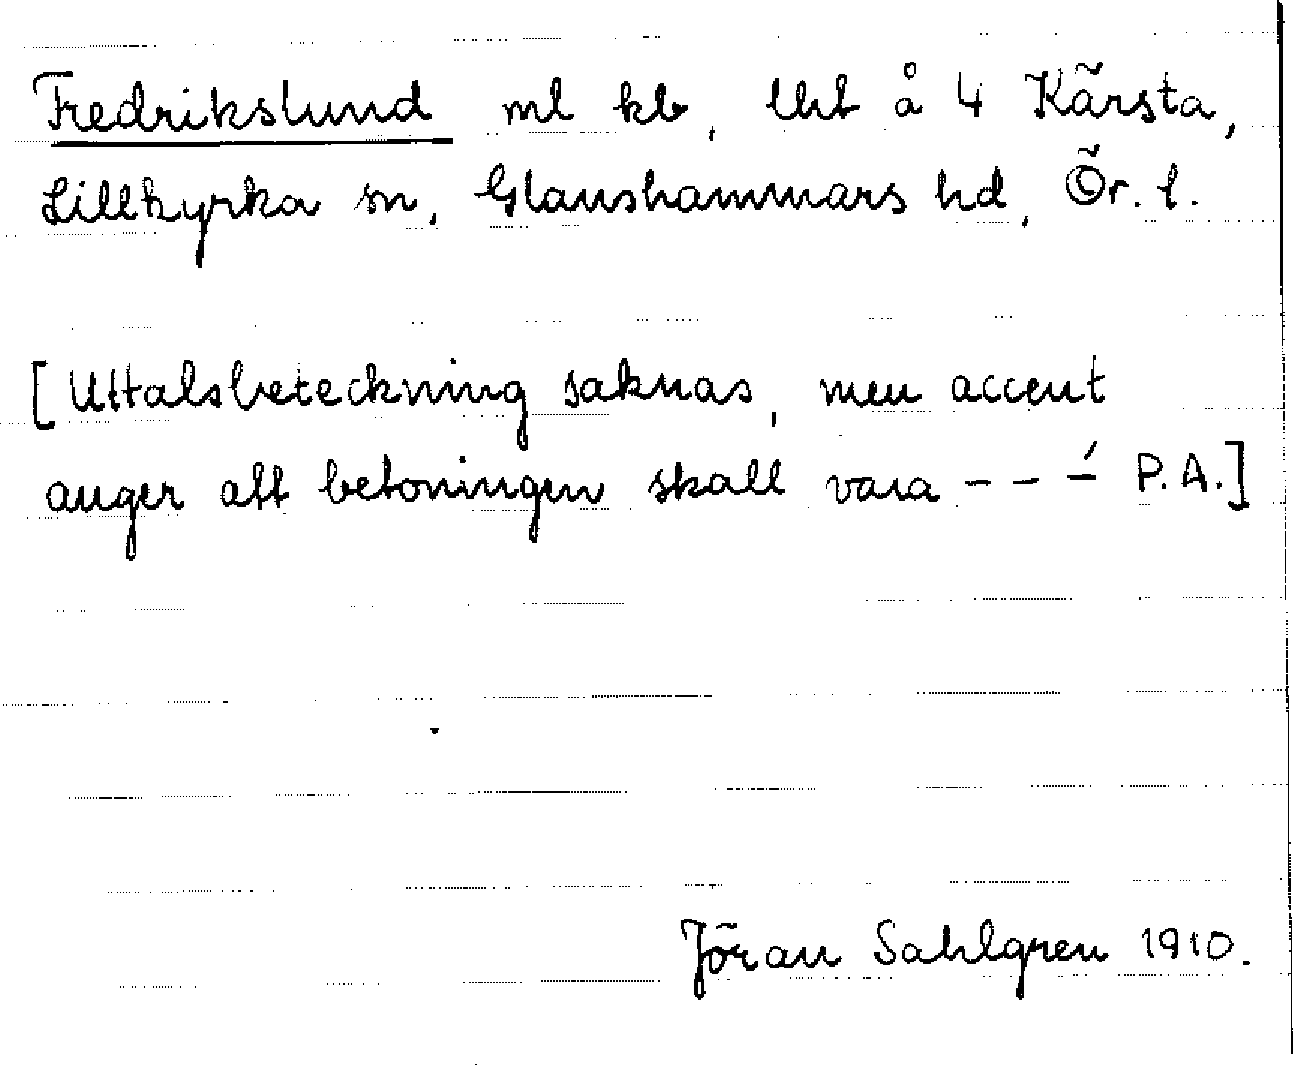 Fredrikslund ml kb, lht å 4 Kärsta,
Lillkyrka sn, Glanshammars hd, Ör. l.
[Uttalsbeteckning saknas, men accent
anger att betoningen skall vara – – –́ P.A.]
Jöran Sahlgren 1910.